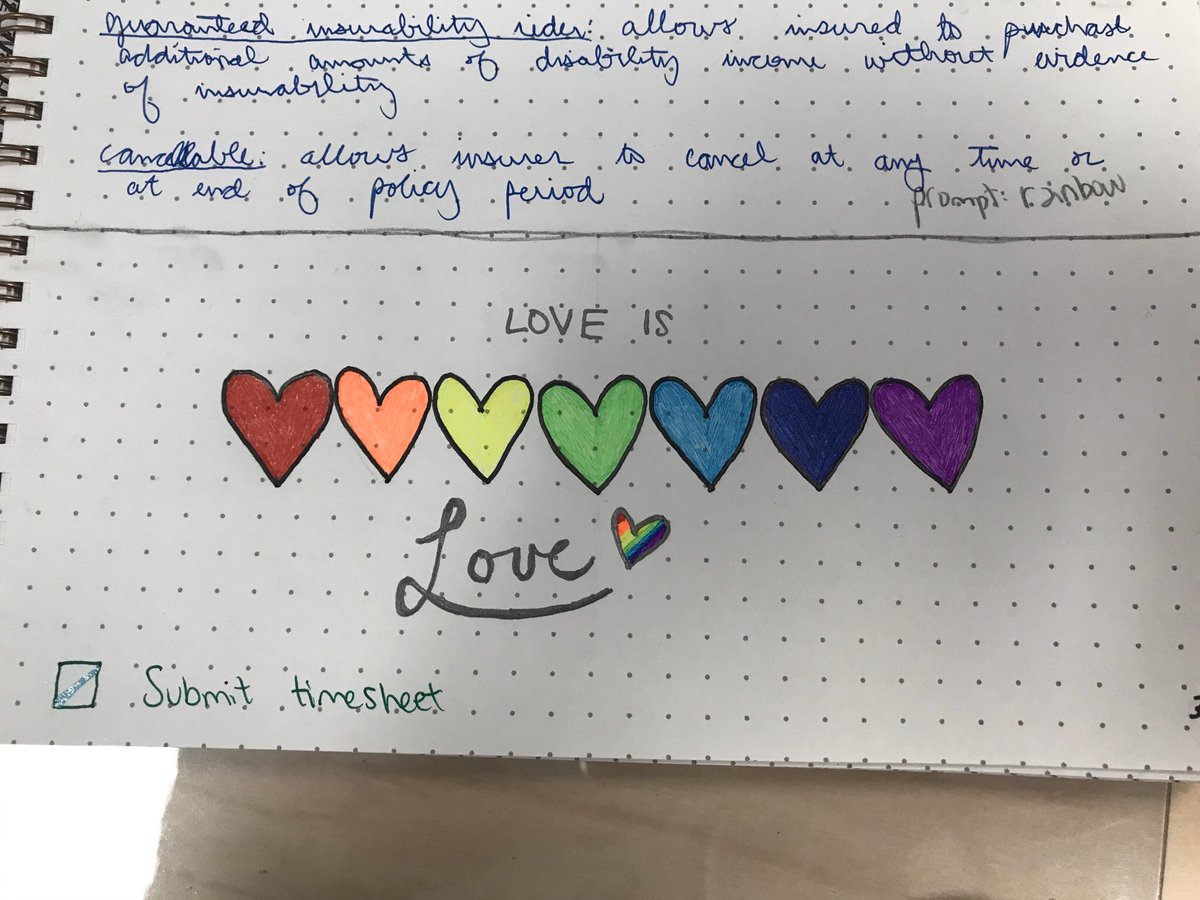 guaranteed insurability rider: allows insured to purchase
additional amounts of disability income without evidence
of insurability
cancellable: allows insurer to cancel at any time or
at end of policy period
prompt: rainbow
LOVE IS
Love
Submit timesheet